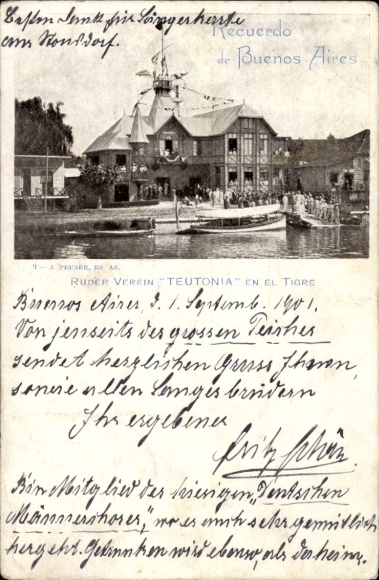 Besten Dank für Sängerkarte
aus Ronsdorf.
Recuerdo
de Buenos Aires
9 — J. PEUSER, BS. AS.
RUDER VEREIN "TEUTONIA" EN EL TIGRE
Buenos Aires, d. 1. Septemb. 1901.
Von jenseits des grossen Teiches
sendet herzlichen Gruss, Ihnen,
sowie allen Sangesbrüdern
Ihr ergebener
Fritz
Bin Mitglied des hiesigen "Deutschen
Männerchores", wo es auch sehr gemütlich
hergeht. Getrunken wird ebenso, als daheim.